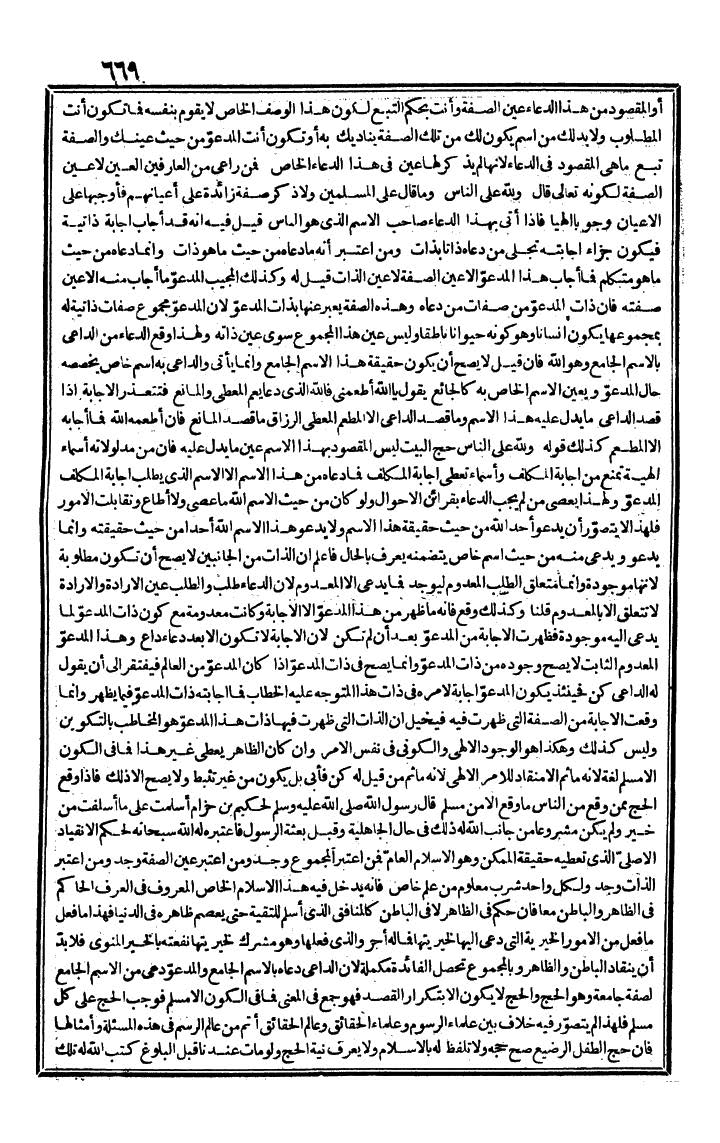 ٦٦٩
أوالمقصود من هذا الدعاء عين الصفة وأنت بحكم التبع لكون هذا الوصف الخاص لا يقوم بنفسه فما تكون أنت
المطلوب ولا بد لك من اسم يكون لك من تلك الصفة يناديك به أو تكون أنت المدعوّ من حيث عينك والصفة
تبع ماهى المقصود فى الدعاء لانها لم يذكر لها عين فى هذا الدعاء الخاص فمن راعى من العارفين العين لا عين
الصفة لكونه تعالى قال ولله على الناس وما قال على المسلمين ولا ذكر صفة زائدة على أعيانهم فأوجبها على
الاعيان وجوبا الهيا فاذا أتى بهذا الدعاء صاحب الاسم الذى هو الناس قيل فيه انه قد أجاب اجابة ذاتية
فيكون جزاء اجابته تجلى من دعاه ذاتا بذات ومن اعتبر أنه مادعاه من حيث ماهو ذات وانما دعاه من حيث
ماهو متكلم فما أجاب هذا المدعوّ الاعين الصفة لا عين الذات قيل له وكذلك المجيب المدعوّ ما أجاب منه الاعين
صفته فان ذات المدعوّ من صفات من دعاه وهذه الصفة يعبر عنها بذات المدعوّ لان المدعوّ مجموع صفات ذاتية له
بمجموعها يكون انسانا وهو كونه حيوانا ناطقا وليس عين هذا المجموع سوى عين ذاته ولهذا وقع الدعاء من الداعى
بالاسم الجامع وهو الله فان قيل لا يصح أن يكون حقيقة هذا الاسم الجامع وانما يأتى والداعى به اسم خاص يخصصه
حال المدعوّ ويعين الاسم الخاص به كالجائع يقول يا الله أطعمنى فالله الذى دعا يعم المعطى والمانع فتتعذر الاجابة اذا
قصد الداعى مايدل عليه هذا الاسم وما قصد الداعى الا المطعم المعطى الرزاق ما قصد المانع فان أطعمه الله فما أجابه
الا المطعم كذلك قوله ولله على الناس حج البيت ليس المقصود بهذا الاسم عين مايدل عليه فان من مدلولاته أسماء
الهية تمنع من اجابة المكلف وأسماء تعطى اجابة المكلف فادعاه من هذا الاسم الا الاسم الذى يطلب اجابة المكلف
المدعوّ ولهذا يعصى من لم يجب الدعاء بقرائن الاحوال ولو كان من حيث الاسم الله ماعصى ولا أطاع وتقابلت الامور
فلهذا لا يتصوّر أن يدعو أحد الله من حيث حقيقة هذا الاسم ولا يدعو هذا الاسم الله أحدا من حيث حقيقته وانما
يدعو ويدعى منه من حيث اسم خاص يتضمنه يعرف بالحال فاعلم ان الذات من الجانبين لا يصح أن تكون مطلوبة
لانها موجودة وانما متعلق الطلب المعدوم ليوجد فما يدعى الا المعدوم لان الدعاء طلب والطلب عين الارادة والارادة
لا تتعلق الا بالمعدوم قلنا وكذلك وقع فانه ماظهر من هذا المدعوّ الا الاجابة وكانت معدومة مع كون ذات المدعوّ لما
يدعى اليه موجودة فظهرت الاجابة من المدعوّ بعد أن لم تكن لان الاجابة لا تكون الا بعد دعاء داع وهذا المدعوّ
المعدوم الثابت لا يصح وجوده من ذات المدعوّ وانما يصح فى ذات المدعوّ اذا كان المدعوّ من العالم فيفتقر الى أن يقول
له الداعى كن فحينئذ يكون المدعوّ اجابة لامره فى ذات هذا المتوجه عليه الخطاب فما اجابته ذات المدعوّ فيما يظهر وانما
وقعت الاجابة من الصفة التى ظهرت فيه فيخيل ان الذات التى ظهرت فيها ذات هذا المدعوّ هو المخاطب بالتكوين
وليس كذلك وهكذا هو الوجود الالهى والكونى فى نفس الامر وان كان الظاهر يعطى غير هذا فما فى الكون
الامسلم لغة لانه ماثم الا منقاد للامر الالهى لانه ماثم من قيل له كن فأبى بل يكون من غير تثبط ولا يصح الا ذلك فاذا وقع
الحج ممن وقع من الناس ماوقع الا من مسلم قال رسول الله صلى الله عليه وسلم لحكيم بن حزام أسلمت على ما أسلفت من
خير ولم يكن مشروعا من جانب الله له ذلك فى حال الجاهلية وقبل بعثة الرسول فاعتبره له الله سبحانه لحكم الانقياد
الاصلىّ الذى تعطيه حقيقة الممكن وهو الاسلام العامّ فمن اعتبر المجموع وجد ومن اعتبر عين الصفة وجد ومن اعتبر
الذات وجد ولكل واحد شرب معلوم من علم خاص فانه يدخل فيه هذا الاسلام الخاص المعروف فى العرف الحاكم
فى الظاهر والباطن معا فان حكم فى الظاهر لا فى الباطن كالمنافق الذى أسلم للتقية حتى يعصم ظاهره فى الدنيا فهذا مافعل
مافعل من الامور الخيرية التى دعى اليها لخيريتها فماله أجر والذى فعلها وهو مشرك لخيريتها نفعته بالخير المنوى فلا بدّ
أن ينقاد الباطن والظاهر وبالمجموع تحصل الفائدة مكملة لان الداعى دعاه بالاسم الجامع والمدعوّ دعى من الاسم الجامع
لصفة جامعة وهو الحج والحج لا يكون الا بتكرار القصد فهو جمع فى المعنى فما فى الكون الامسلم فوجب الحج على كل
مسلم فلهذا لم يتصوّر فيه خلاف بين علماء الرسوم وعلماء الحقائق وعالم الحقائق أتم من عالم الرسم فى هذه المسئلة وأمثالها
فان حج الطفل الرضيع صح حجه ولا تلفظ له بالاسلام ولا يعرف نية الحج ولو مات عندنا قبل البلوغ كتب الله له تلك